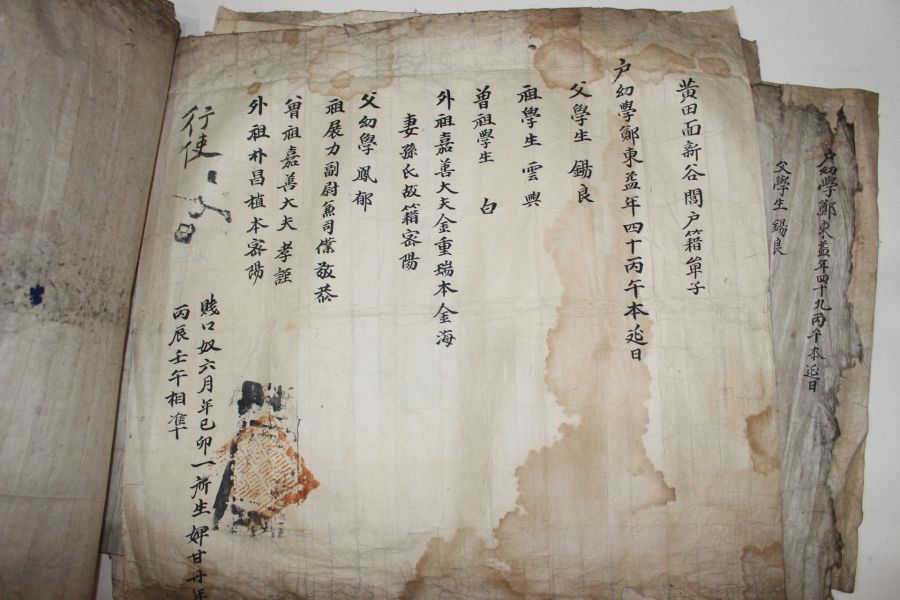 黃田面新谷閭戶籍單子
戶幼學鄭東益年四十丙午本延日
父學生 錫良
祖學生 雲興
曾祖學生 白
外祖嘉善大夫金重瑞本金海
妻孫氏故籍密陽
父幼學 鳳郁
祖展力副尉兼司僕敬恭
曾祖嘉善大夫 孝謹
外祖朴昌植本密陽
賤口奴六月年己卯一所生婢甘丹年
丙辰壬午相準
行使
戶幼學鄭東益年四十九丙午本延日
父學生 錫良